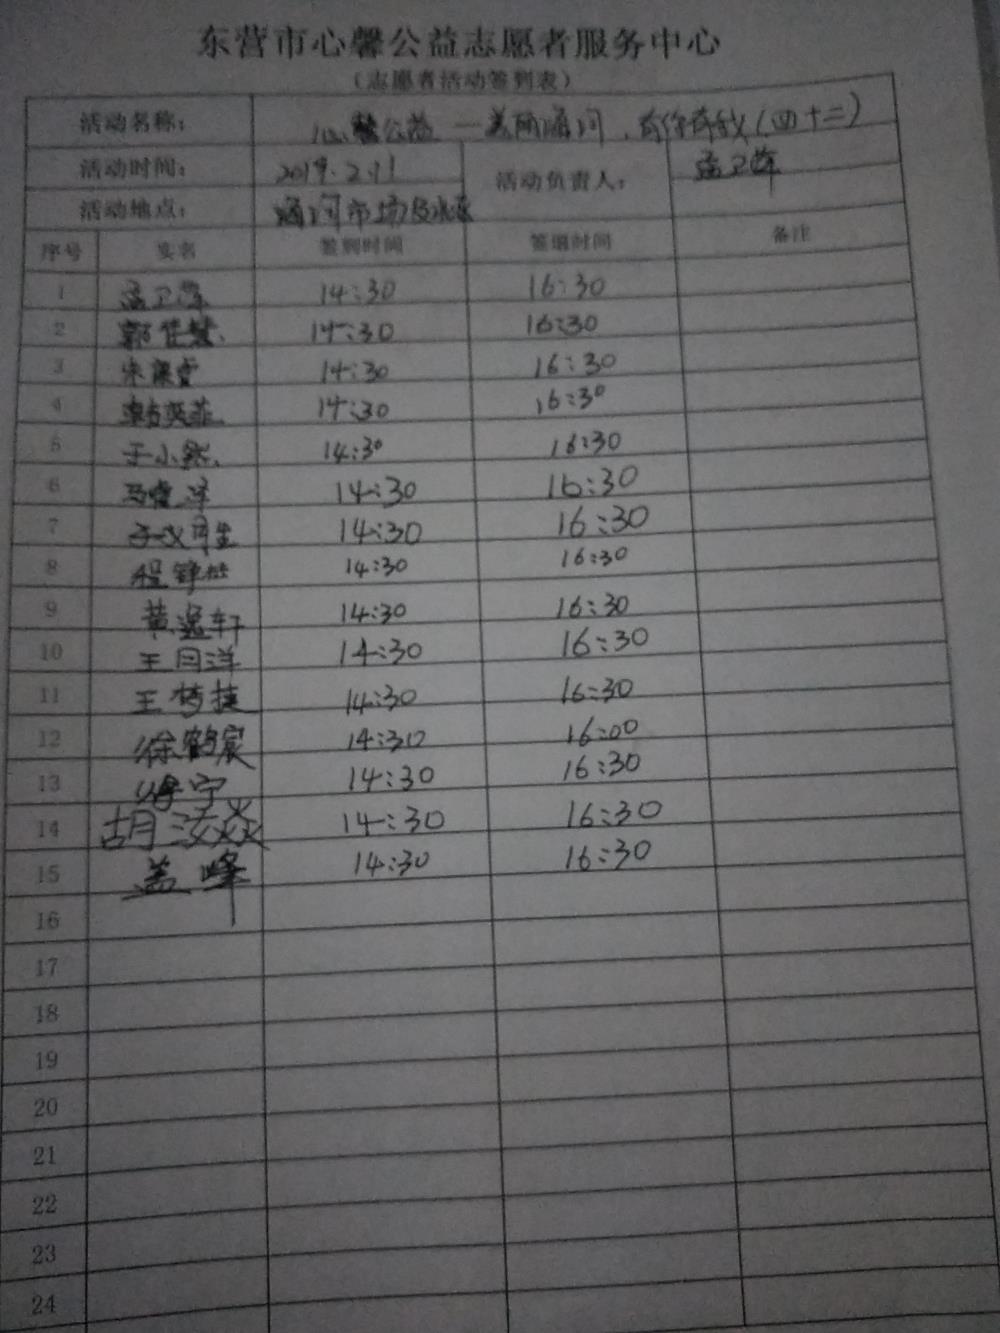 东营市心馨公益志愿者服务中心
（志愿者活动签到表）
活动名称： 心馨公益—美丽涌河，有你有我（四十二）
活动时间： 2019.2.11 活动负责人： 孟卫
活动地点： 河市场及
序号 姓名 签到时间 签退时间 备注
1 孟卫 14:30 16:30
2 郭佳慧 14:30 16:30
3 朱 14:30 16:30
4 韩英菲 14:30 16:30
5 于小然 14:30 16:30
6 马睿泽 14:30 16:30
7 14:30 16:30
8 程 14:30 16:30
9 黄逸轩 14:30 16:30
10 王月洋 14:30 16:30
11 王梦捷 14:30 16:30
12 徐鹤宸 14:30 16:00
13 宁 14:30 16:30
14 胡焱 14:30 16:30
15 盖峰 14:30 16:30
16
17
18
19
20
21
22
23
24